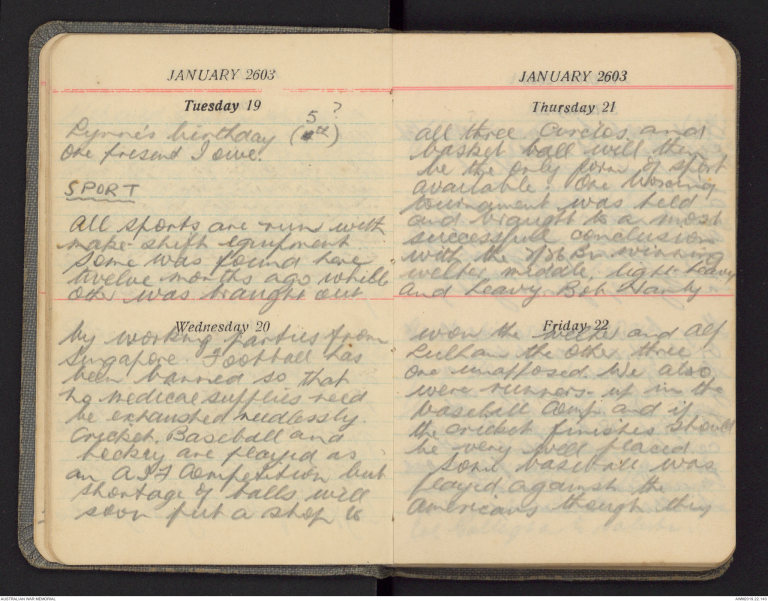 JANUARY 2603
Tuesday 19
Lynne's birthday (5th ?)
one present I owe.
SPORT
All sports are run with
make shift equipment
some was found here
twelve months ago while
other was brought out
Wednesday 20
by working parties from
Singapore. Football has
been banned so that
no medical supplies need
be exhausted needlessly.
Cricket, Baseball and
hockey are played as
an AIF Competition but
shortage of balls will
soon put a stop to
JANUARY 2603
Thursday 21
all three Circles and
basket ball will then
be the only form of sport
available. One boxing
tournament was held
and brought to a most
successful conclusion
with the Bn winning
welter, middle, light heavy
and heavy Bob Hardy
Friday 22
won the welter and Alf
the other three
one unopposed. We also
were runners up in the
baseball Comp. and if
the cricket finishes should
be very well placed
Some baseball was
played against the
Americans though they
AUSTRALIAN WAR MEMORIAL